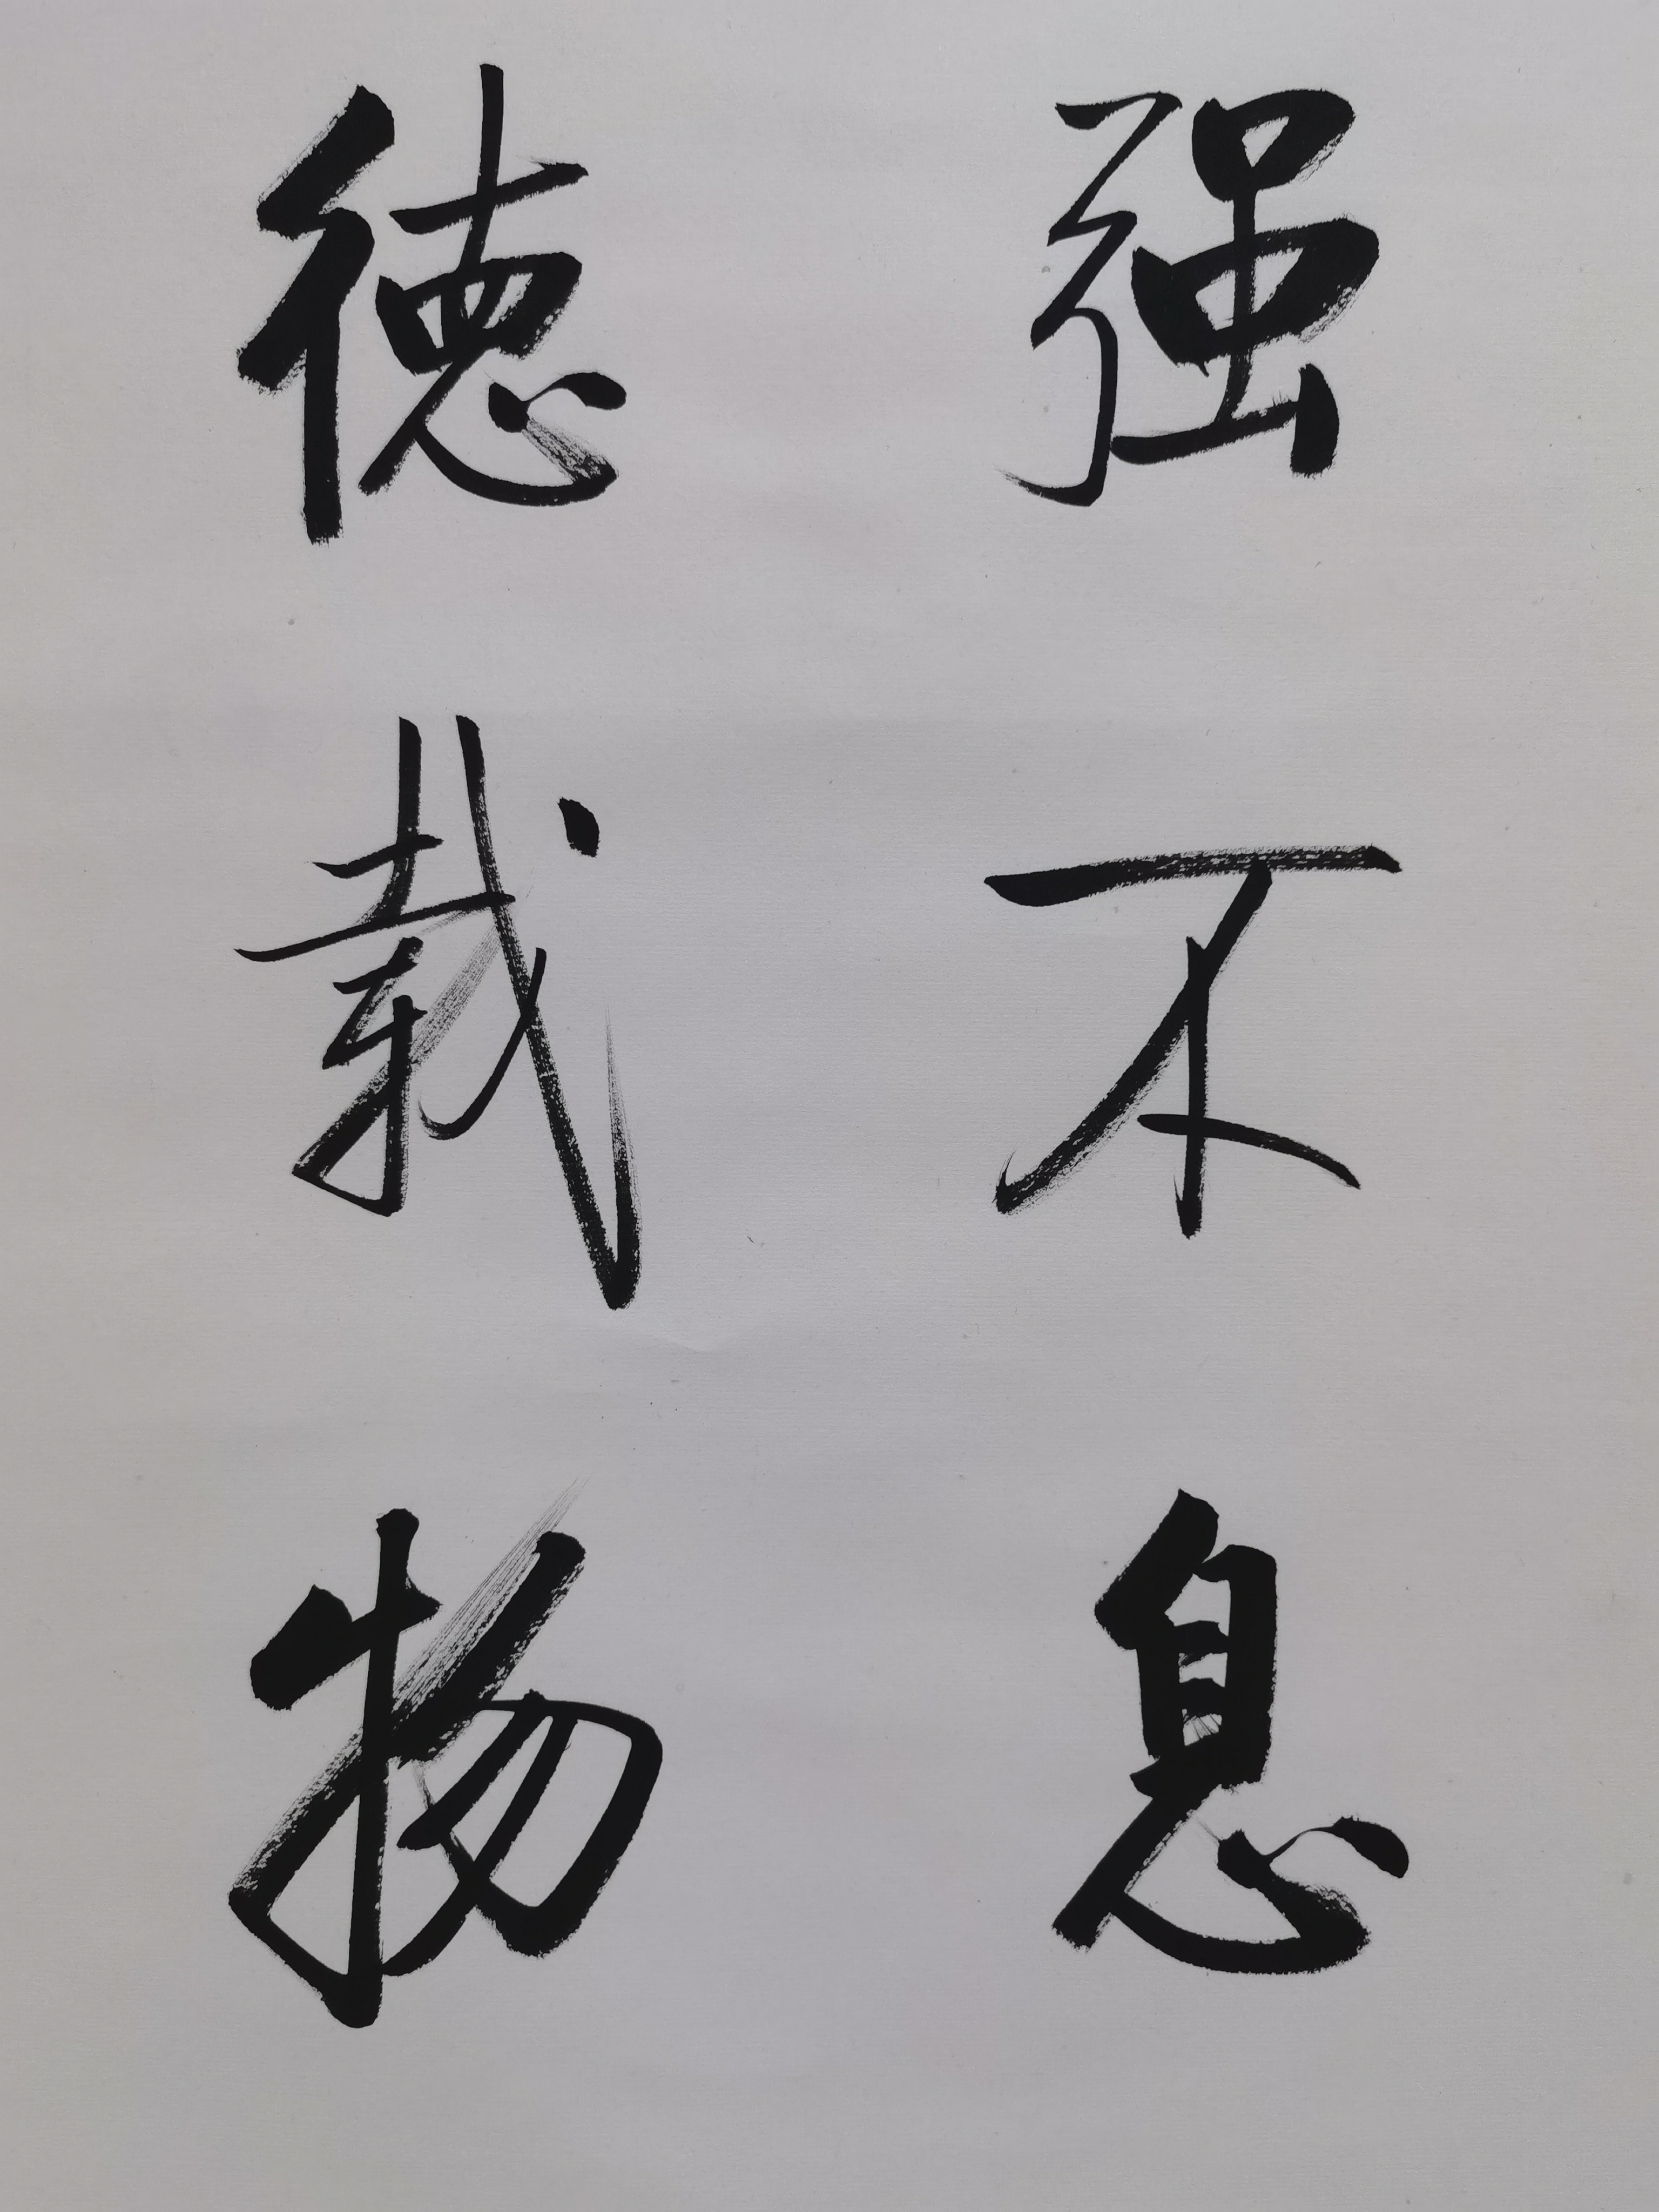 强不息
德载物